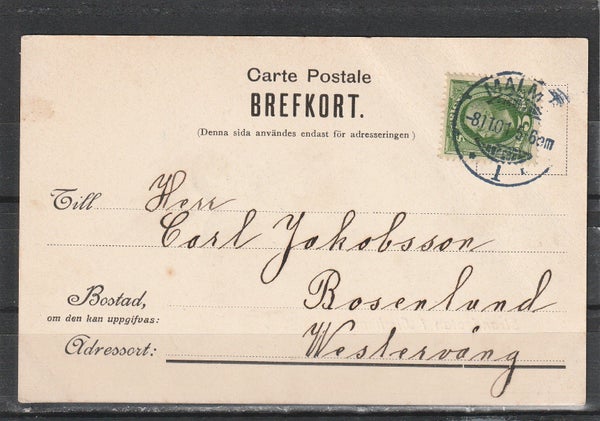 Carte Postale
BREFKORT.
(Denna sida användes endast för adresseringen)
MALMÖ
Till Herr
Carl Jakobsson
Bostad, Rosenlund
om den kan uppgifvas:
Adressort: Westervång